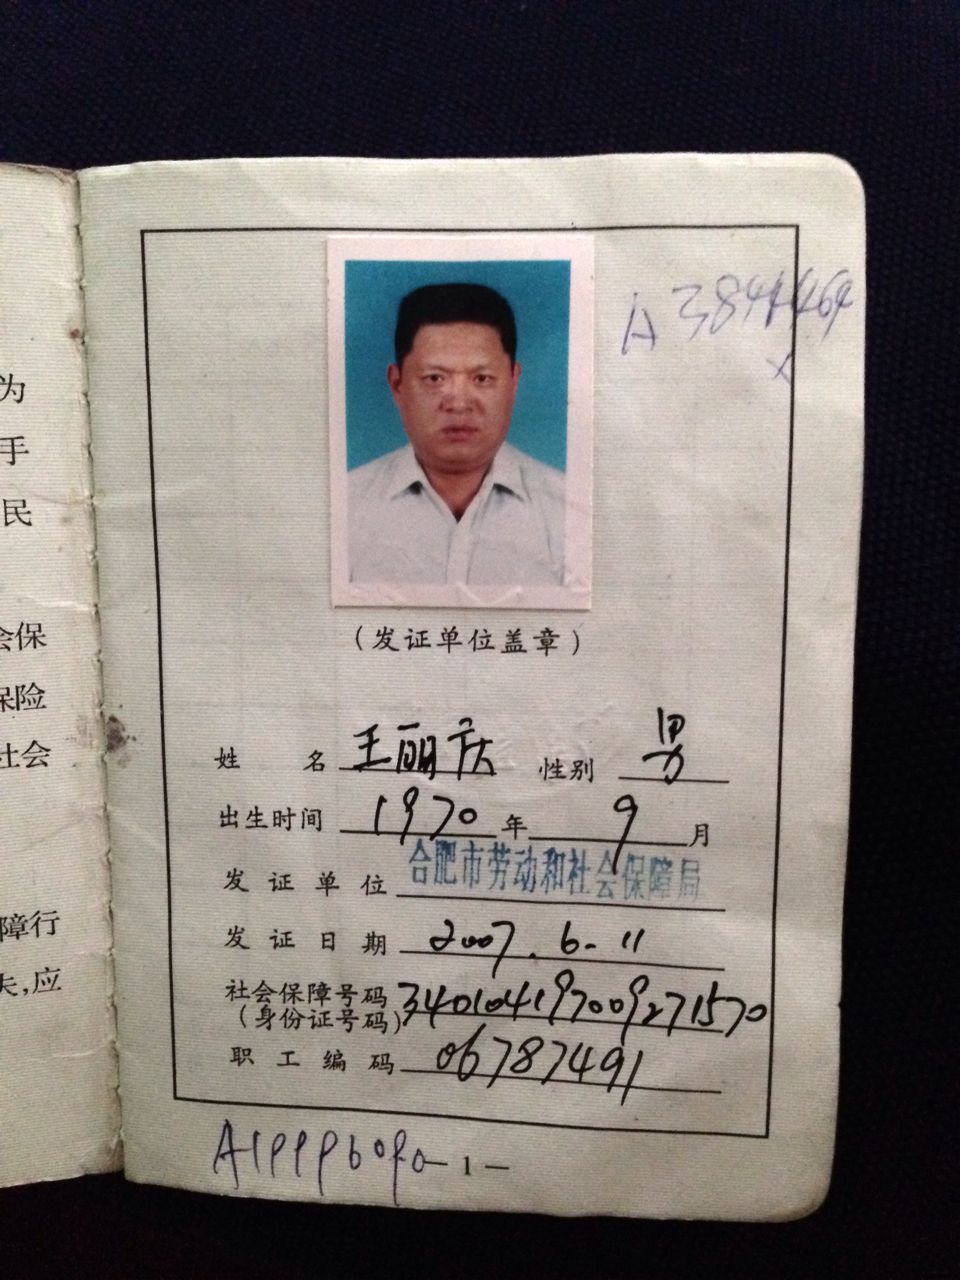 为
手
民
会保
保险
社会
障行
失,应
(发证单位盖章)
姓 名 王丽庆 性别 男
出生时间 1970 年 9 月
发证单位 合肥市劳动和社会保障局
发证日期 2007.6-11
社会保障号码 340104197009271570
(身份证号码)
职工编码 06787491
-1-